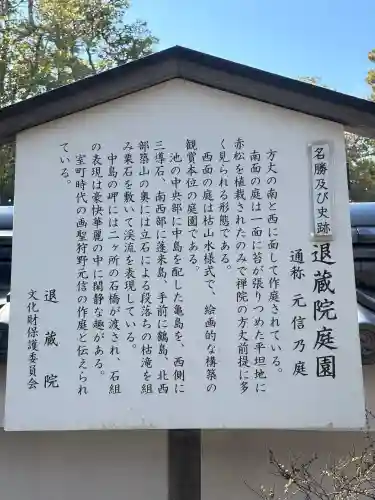 名勝及び史跡
退蔵院庭園
通称 元信乃庭
方丈の南と西に面して作庭されている。
南面の庭は一面に苔が張りつめた平坦地に
赤松を植栽されたのみで禅院の方丈前提に多
く見られる形態である。
西面の庭は枯山水様式で、絵画的な構築の
観賞本位の庭園である。
池の中央部に中島を配した亀島を、西側に
三尊石、南西部に蓬莱島、手前に鶴島、北西
部築山の奥には立石による段落ちの枯滝を組
み栗石を敷いて渓流を表現している。
中島の岬には二ヶ所の石橋が渡され、石組
の表現は豪快華麗の中に閑静な趣がある。
室町時代の画聖狩野元信の作庭と伝えられ
ている。
退蔵院
文化財保護委員会